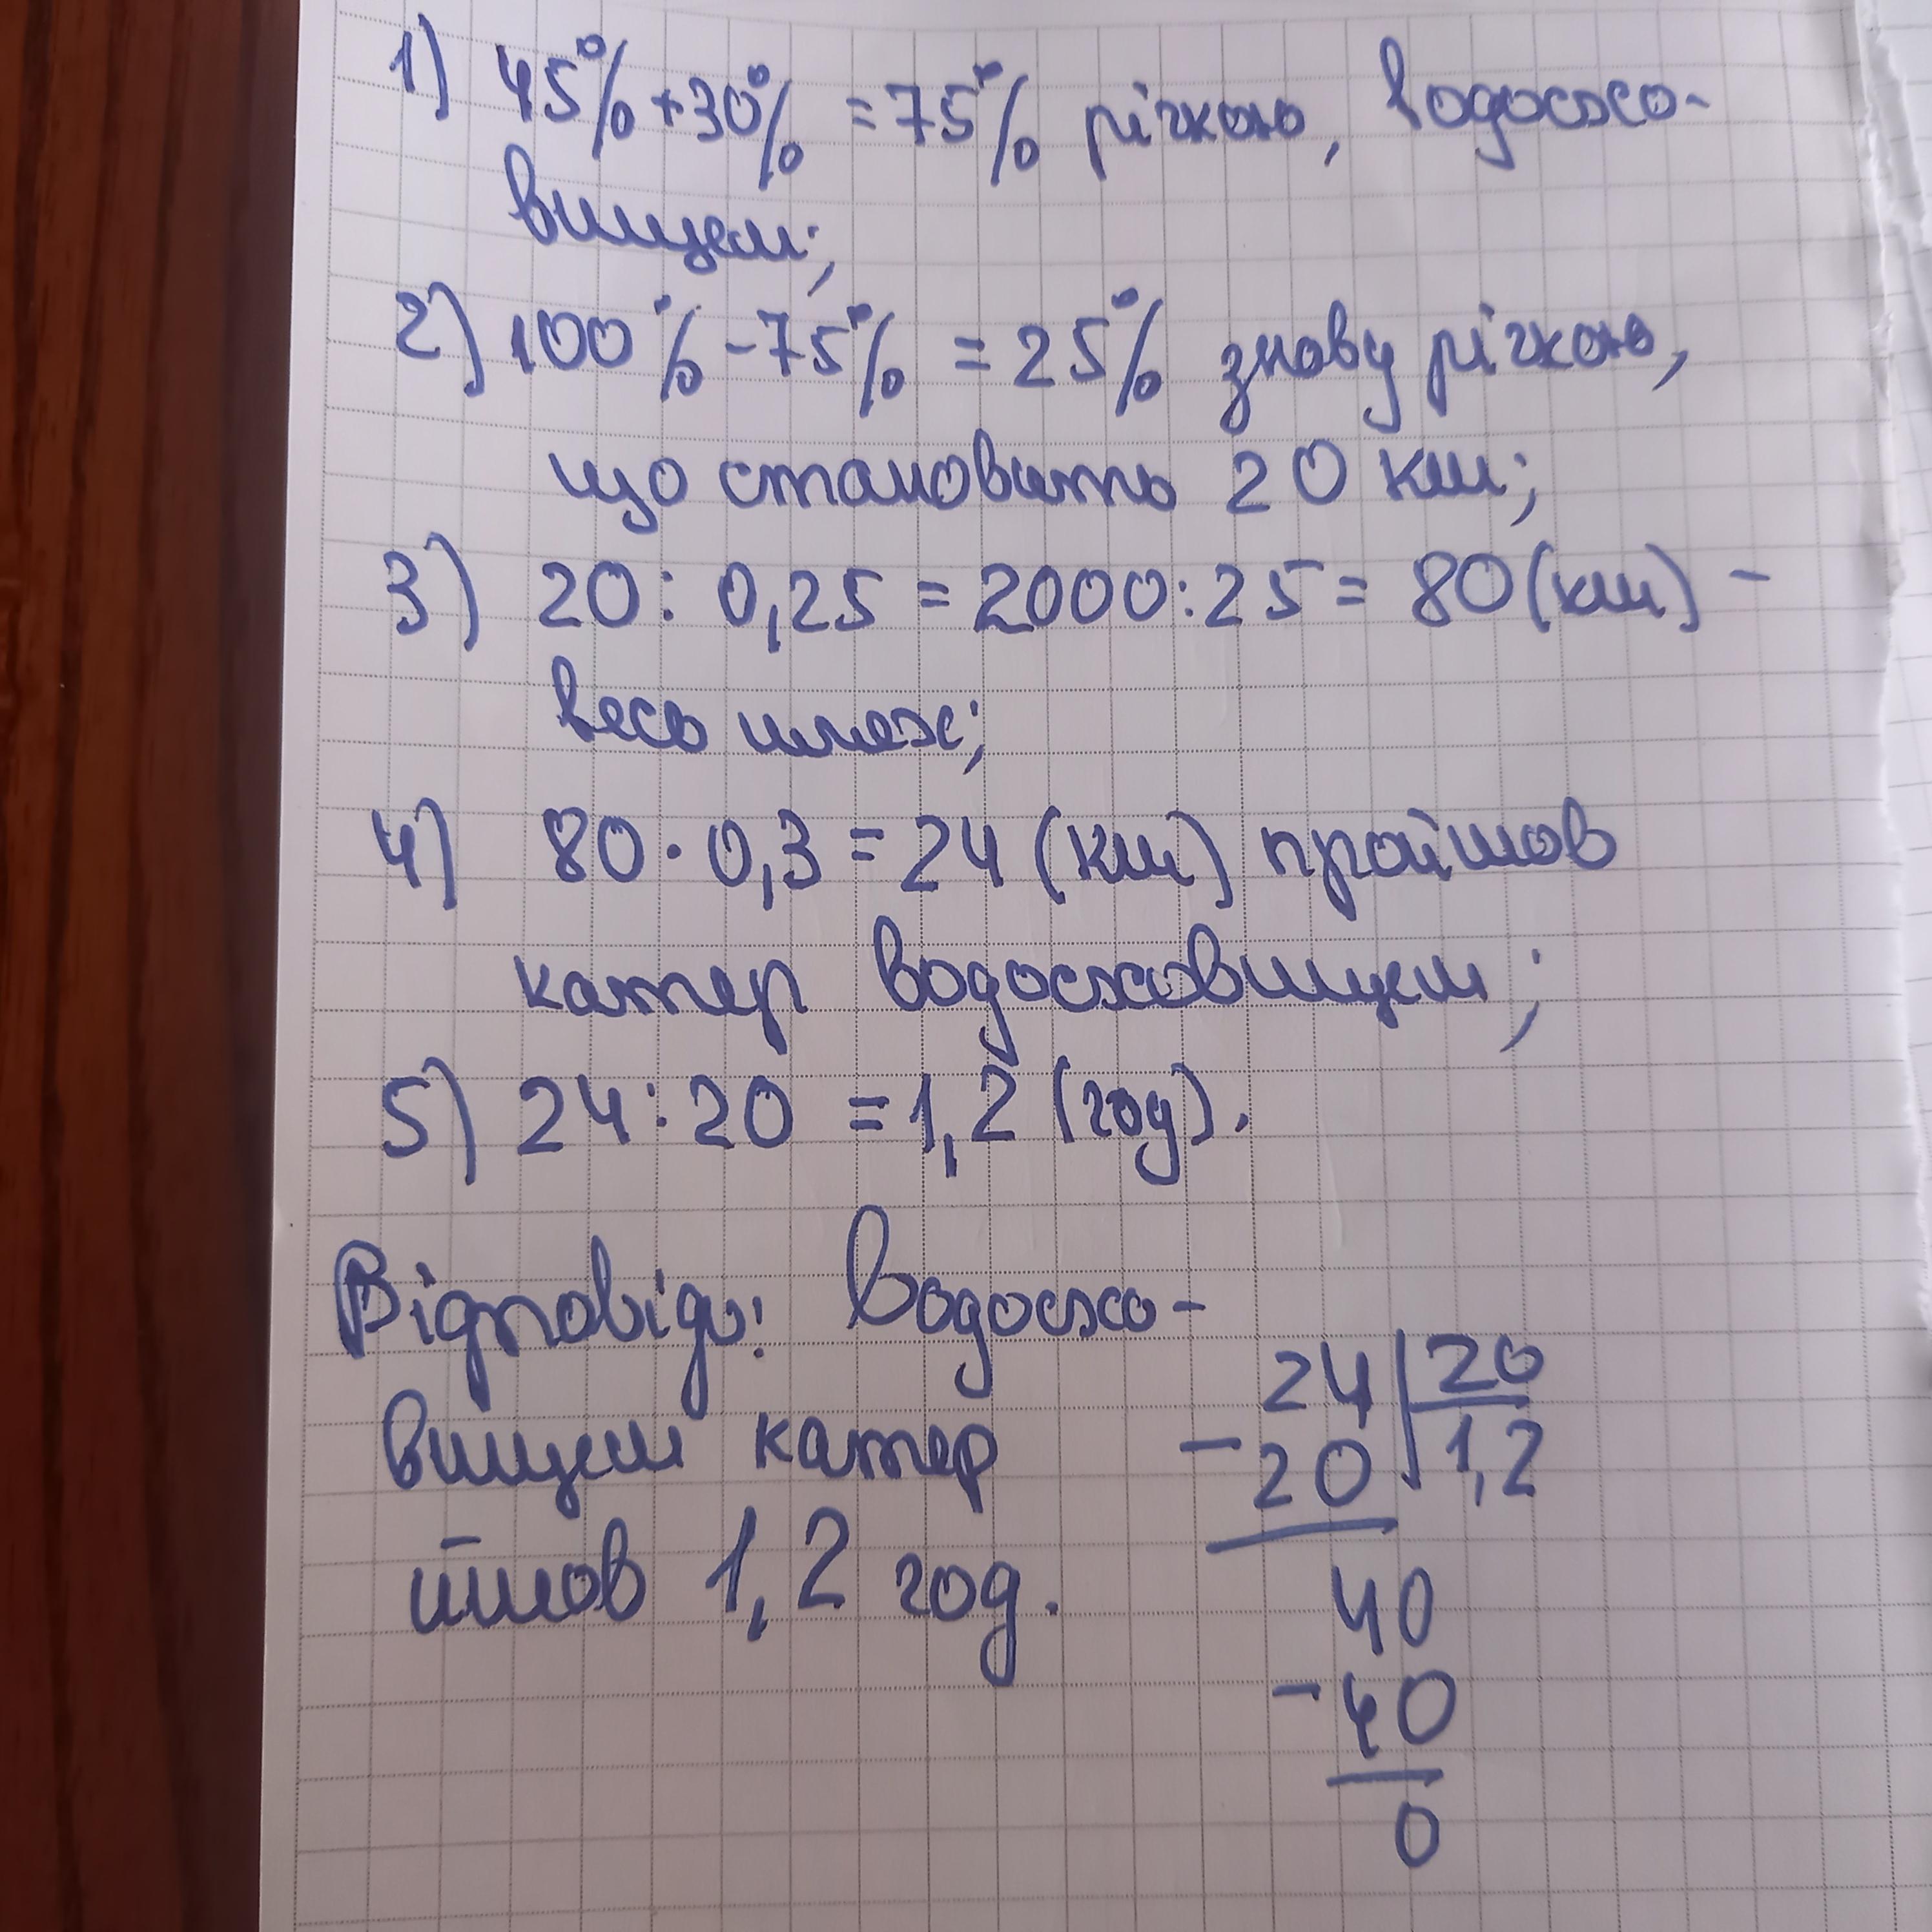 1) 45% + 30% = 75% річкою, водосхо-
вищем;
2) 100% - 75% = 25% знову річкою,
що становить 20 км;
3) 20 : 0,25 = 2000 : 25 = 80 (км) -
весь шлях;
4) 80 · 0,3 = 24 (км) пройшов
катер водосховищем;
5) 24 : 20 = 1,2 (год).
Відповідь: Водосхо-
вищем катер
йшов 1,2 год.
24 | 20
- 20 | 1,2
40
- 40
0